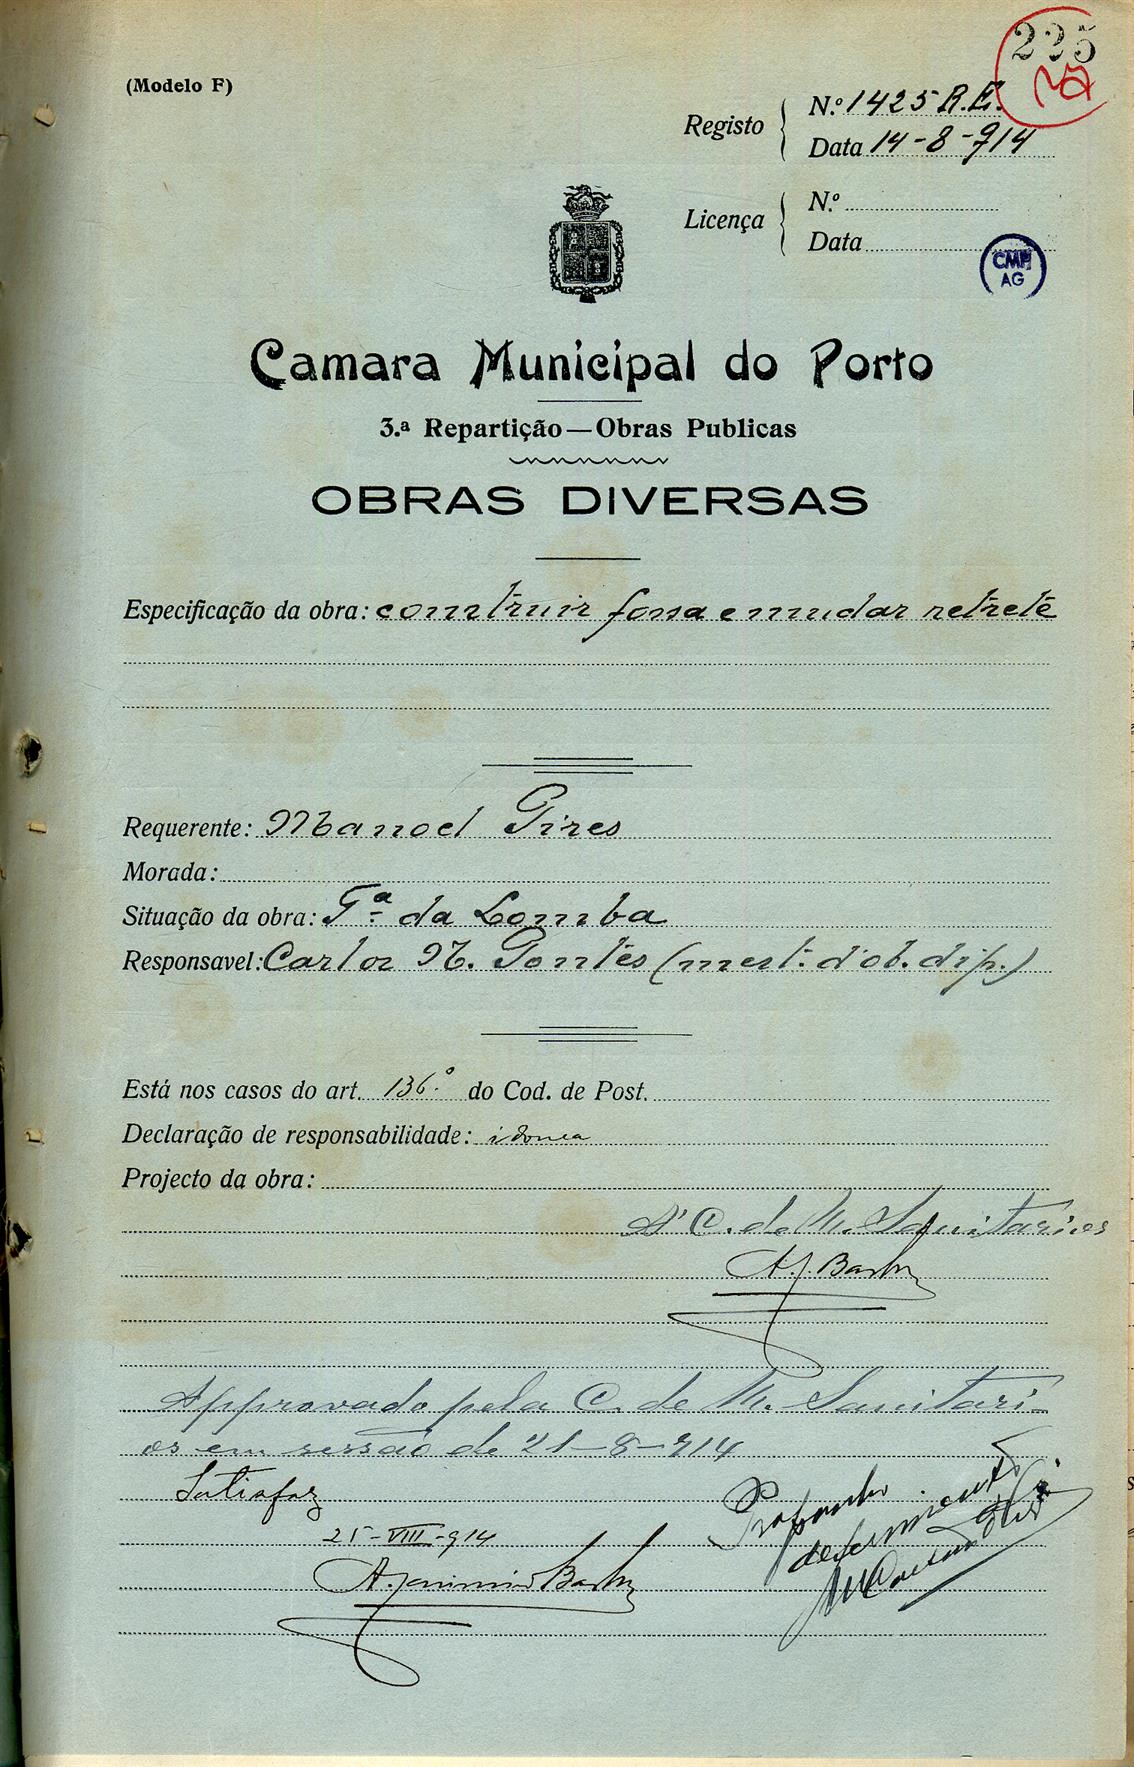 225
(Modelo F)
Registo
N.º 1425 R.E.
Data 14-8-914
Licença
N.º
Data
CMP
AG
Camara Municipal do Porto
3.ª Repartição—Obras Publicas
OBRAS DIVERSAS
Especificação da obra: construir fossa e mudar retrete
Requerente: Manoel Pires
Morada:
Situação da obra: T.ª da Lomba
Responsavel: Carlos N. Pontes (mest. d'ob. dip.)
Está nos casos do art. 136.º do Cod. de Post.
Declaração de responsabilidade: idonea
Projecto da obra:
A' C. de M. Sanitarios
A. J. Barbosa
Approvado pela C. de M. Sanitari-
os em sessão de 21-8-914
Satisfaz
Proponho
25-VIII-914
deferimento
A. Barbosa